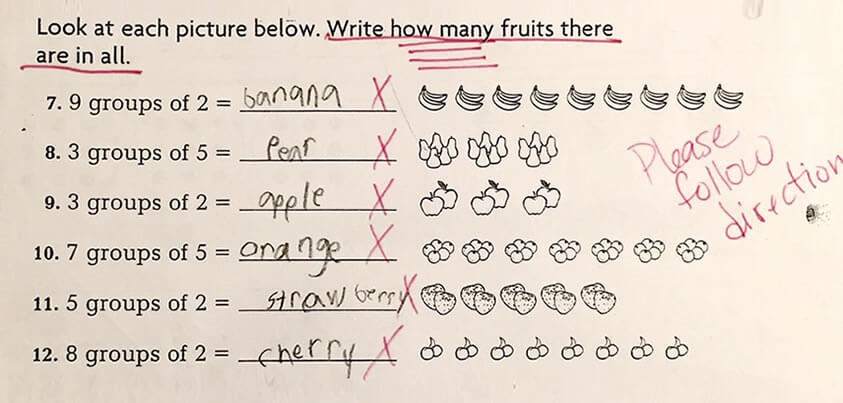 Look at each picture below. Write how many fruits there
are in all.
7. 9 groups of 2 = banana X
8. 3 groups of 5 = Pear X
9. 3 groups of 2 = apple X
10. 7 groups of 5 = orange X
11. 5 groups of 2 = strawberry X
12. 8 groups of 2 = cherry X
Please
follow
direction